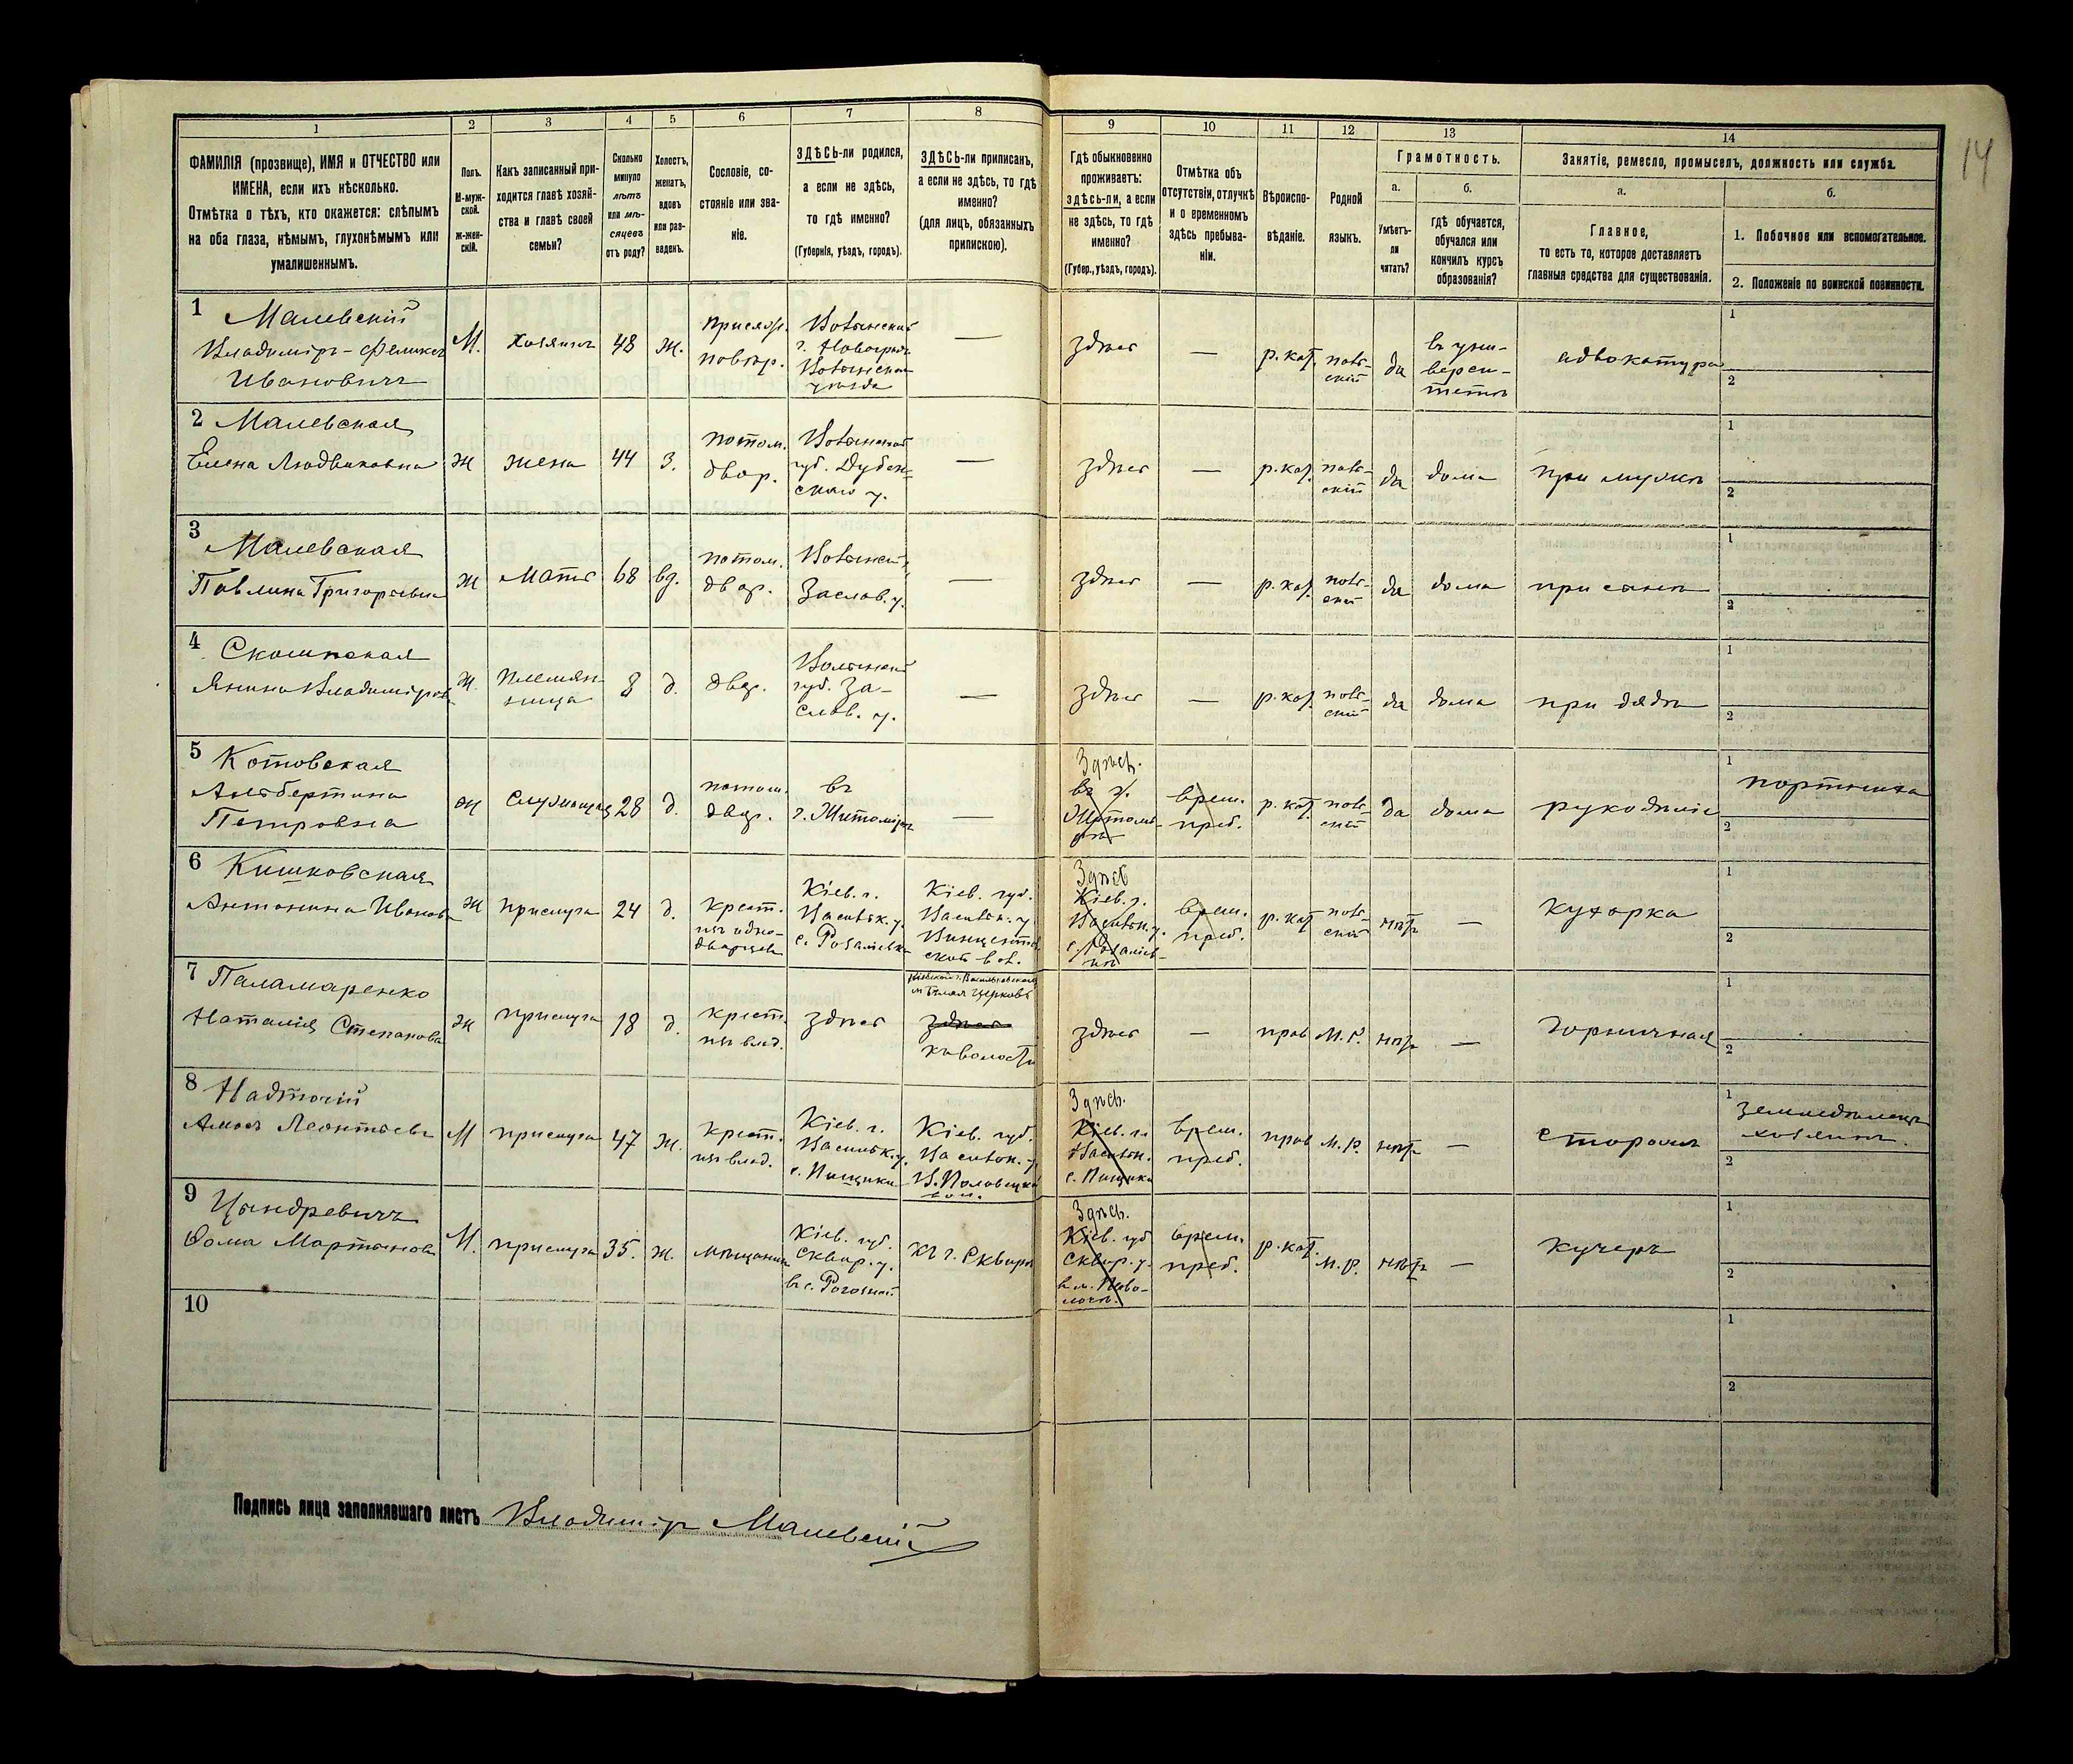 14
1 2 3 4 5 6 7 8 9 10 11 12 13 14
ФАМИЛІЯ (прозвище), ИМЯ и ОТЧЕСТВО или
ИМЕНА, если ихъ нѣсколько.
Отмѣтка о тѣхъ, кто окажется: слѣпымъ
на оба глаза, нѣмымъ, глухонѣмымъ или
умалишеннымъ.
Полъ.
М-муж-
ской.
Ж-жен-
скій.
Какъ записанный при-
ходится главѣ хозяй-
ства и главѣ своей
семьи?
Сколько
минуло
лѣтъ
или мѣ-
сяцевъ
отъ роду?
Холостъ,
женатъ,
вдовъ
или раз-
веденъ.
Сословіе, со-
стояніе или зва-
ніе.
ЗДѢСЬ-ли родился,
а если не здѣсь,
то гдѣ именно?
(Губернія, уѣздъ, городъ).
ЗДѢСЬ-ли приписанъ,
а если не здѣсь, то гдѣ
именно?
(для лицъ, обязанныхъ
припискою).
Гдѣ обыкновенно
проживаетъ:
здѣсь-ли, а если
не здѣсь, то гдѣ
именно?
(Губер., уѣздъ, городъ).
Отмѣтка объ
отсутствіи, отлучкѣ
и о временномъ
здѣсь пребыва-
ніи.
Вѣроиспо-
вѣданіе.
Родной
языкъ.
Грамотность.
а.
Умѣетъ-
ли
читать?
б.
гдѣ обучается,
обучался или
кончилъ курсъ
образованія?
Занятіе, ремесло, промыселъ, должность или служба.
а.
Главное,
то есть то, которое доставляетъ
главныя средства для существованія.
б.
1. Побочное или вспомогательное.
2. Положеніе по воинской повинности.
1
Малевскій
Владиміръ-Феликсъ
Ивановичъ
М.
хозяинъ
48
ж.
присяж.
повѣр.
Волынской
г. Новоградъ
Волынскаго
уѣзда
—
здѣсь
—
р. кат.
поль-
скій
да
въ уни-
верси-
тетѣ
адвокатура
1
2
2
Малевская
Елена Людвиковна
Ж
жена
44
з.
потом.
двор.
Волынской
губ. Дубен-
скаго у.
—
здѣсь
—
р. кат.
поль-
скій
да
дома
при мужѣ
1
2
3
Малевская
Павлина Григорьевна
Ж
мать
68
вд.
потом.
двор.
Волынск.
Заслав. у.
—
здѣсь
—
р. кат.
поль-
скій
да
дома
при сынѣ
1
2
4
Янина Владиміровна
Ж.
племян-
ница
8
д.
двор.
Волынской
губ. За-
слав. у.
—
здѣсь
—
р. кат.
поль-
скій
да
дома
при дядѣ
1
2
5
Котовская
Альбертина
Петровна
Ж
служащая
28
д.
потом.
двор.
въ
г. Житомірѣ
—
Здѣсь.
въ г.
Житомі-
рѣ
врем.
преб.
р. кат.
поль-
скій
да
дома
рукодѣліе
1
портниха
2
6
Кишковская
Антонина Иванова
Ж
прислуга
24
д.
крест.
изъ одно-
дворцевъ
Кіев. г.
Васильк. у.
с. Розаліевка
Кіев. губ.
Васильк. у.
Винцентов-
ской вол.
Здѣсь
Кіев. г.
Васильк. у.
с. Розаліев-
кѣ
врем.
преб.
р. кат
поль-
скій
нѣтъ
—
кухарка
1
2
7
Паламаренко
Наталія Степанова
Ж
прислуга
18
д.
крест.
изъ влад.
здѣсь
Кіевской г. Васильковскаго у.
м Бѣлая Церковь
здѣсь
къ волости
здѣсь
—
прав
М. Р.
нѣтъ
—
горничная
1
2
8
Надточій
Амосъ Леонтьевъ
М
прислуга
47
ж.
крест.
изъ влад.
Кіев. г.
Васильк. у.
с. Пищики
Кіев. губ.
Васильк. у.
В. Половецкой
вол.
Здѣсь.
Кіев. г.
Васильк.
с. Пищики
врем.
преб.
прав
м. р.
нѣтъ
—
сторожъ
1
земледѣлецъ
хозяинъ.
2
9
Цындревичъ
Фома Мартыновъ
М.
прислуга
35.
ж.
мѣщанинъ
Кіев. губ.
Сквир. у.
въ с. Рогозной
къ г. Сквирѣ
Здѣсь.
Кіев. губ
Сквир. у.
въ м. Паво-
лочь.
врем.
преб.
р. кат.
м. р.
нѣтъ
—
кучеръ
1
2
10
1
2
Подпись лица заполнявшаго листъ Владиміръ Малевскій